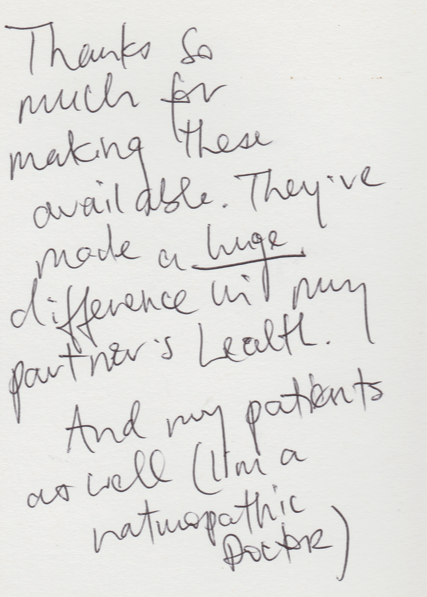 Thanks so
much for
making these
available. They've
made a huge
difference in my
partner's health.
And my patients
as well (I'm a
naturopathic
Doctor)